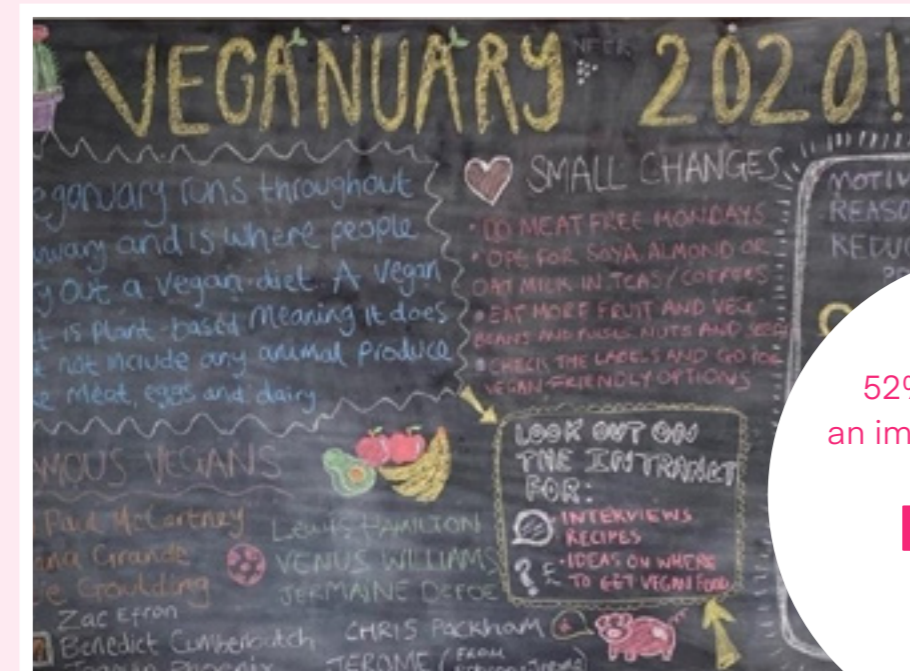 VEGANUARY 2020!
eganuary runs throughout
nuary and is where people
y out a vegan diet. A vegan
t is plant-based meaning it does
not include any animal produce
e meat, eggs and dairy
SMALL CHANGES
• DO MEAT FREE MONDAYS
• OPE FOR SOYA ALMOND OR
OAT MILK IN TEAS/COFFEES
• EAT MORE FRUIT AND VEG
BEANS AND PULSES NUTS AND SEEDS
• CHECK THE LABELS AND GO FOR
VEGAN-FRIENDLY OPTIONS
MOTIV
REASO
REDUC
LOOK OUT ON
THE INTRANET
FOR:
• INTERVIEWS
RECIPES
• IDEAS ON WHERE
TO GET VEGAN FOOD
MOUS VEGANS
Paul McCartney
ana Grande
ie Goulding
Zac Efron
Benedict Cumberbatch
Joaquin Phoenix
LEWIS HAMILTON
VENUS WILLIAMS
JERMAINE DEFOE
CHRIS PACKHAM
JEROME (FROM
52%
an im